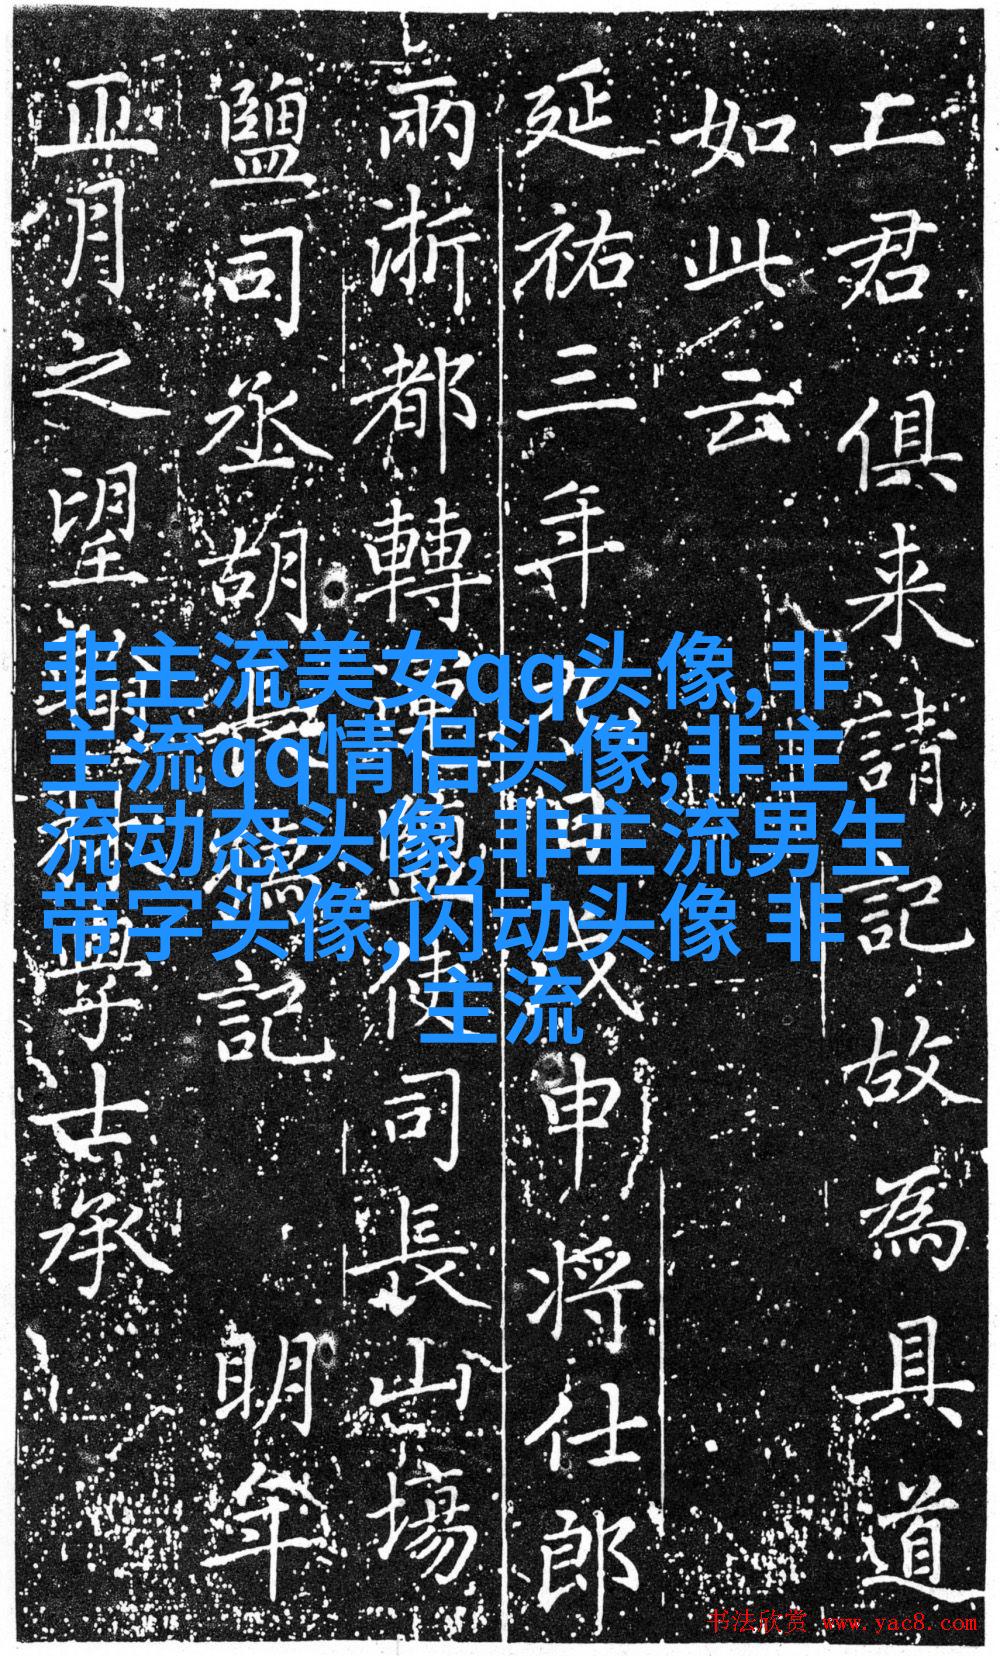 土君俱来請記故為具道
如此云
延祐三年 戊申将仕郎
兩浙都轉運鹽使司長山場
鹽司丞胡長孺記 明年
正月之望 學士承
非主流美女qq头像,非
主流qq情侣头像,非主
流动态头像,非主流男生
带字头像,闪动头像 非
主流
书法欣赏 www.yac8.com